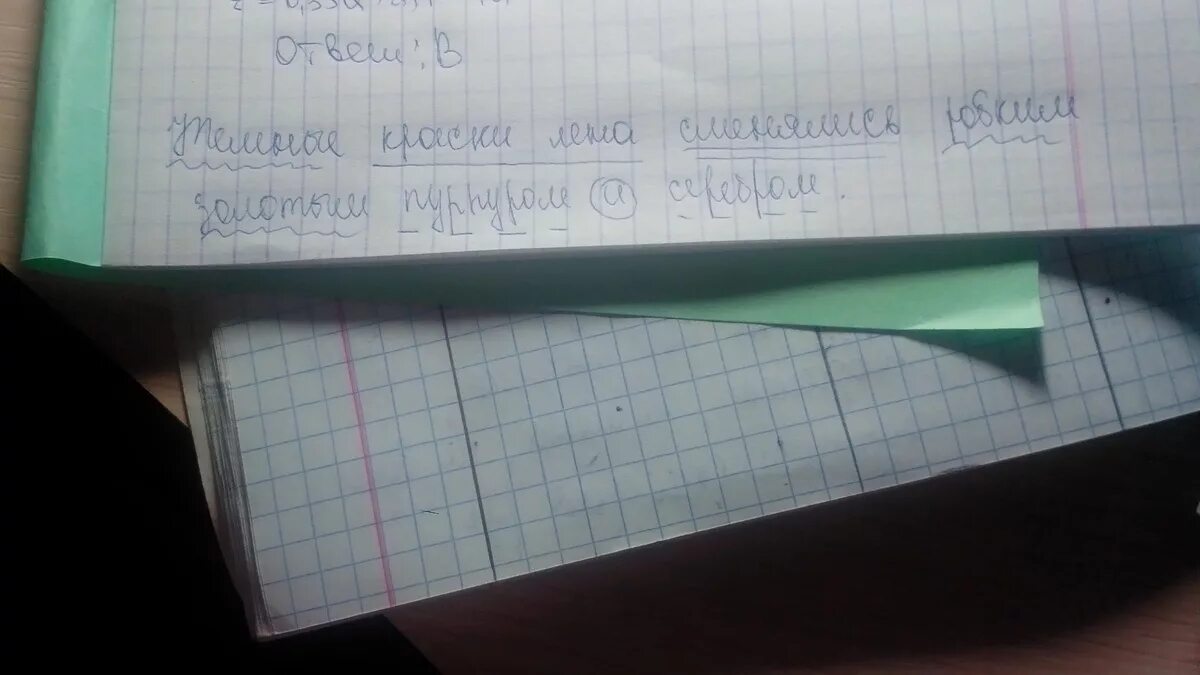 Ответ: В
Темные краски лета сменялись ярким
золотым пурпуром и серебром.